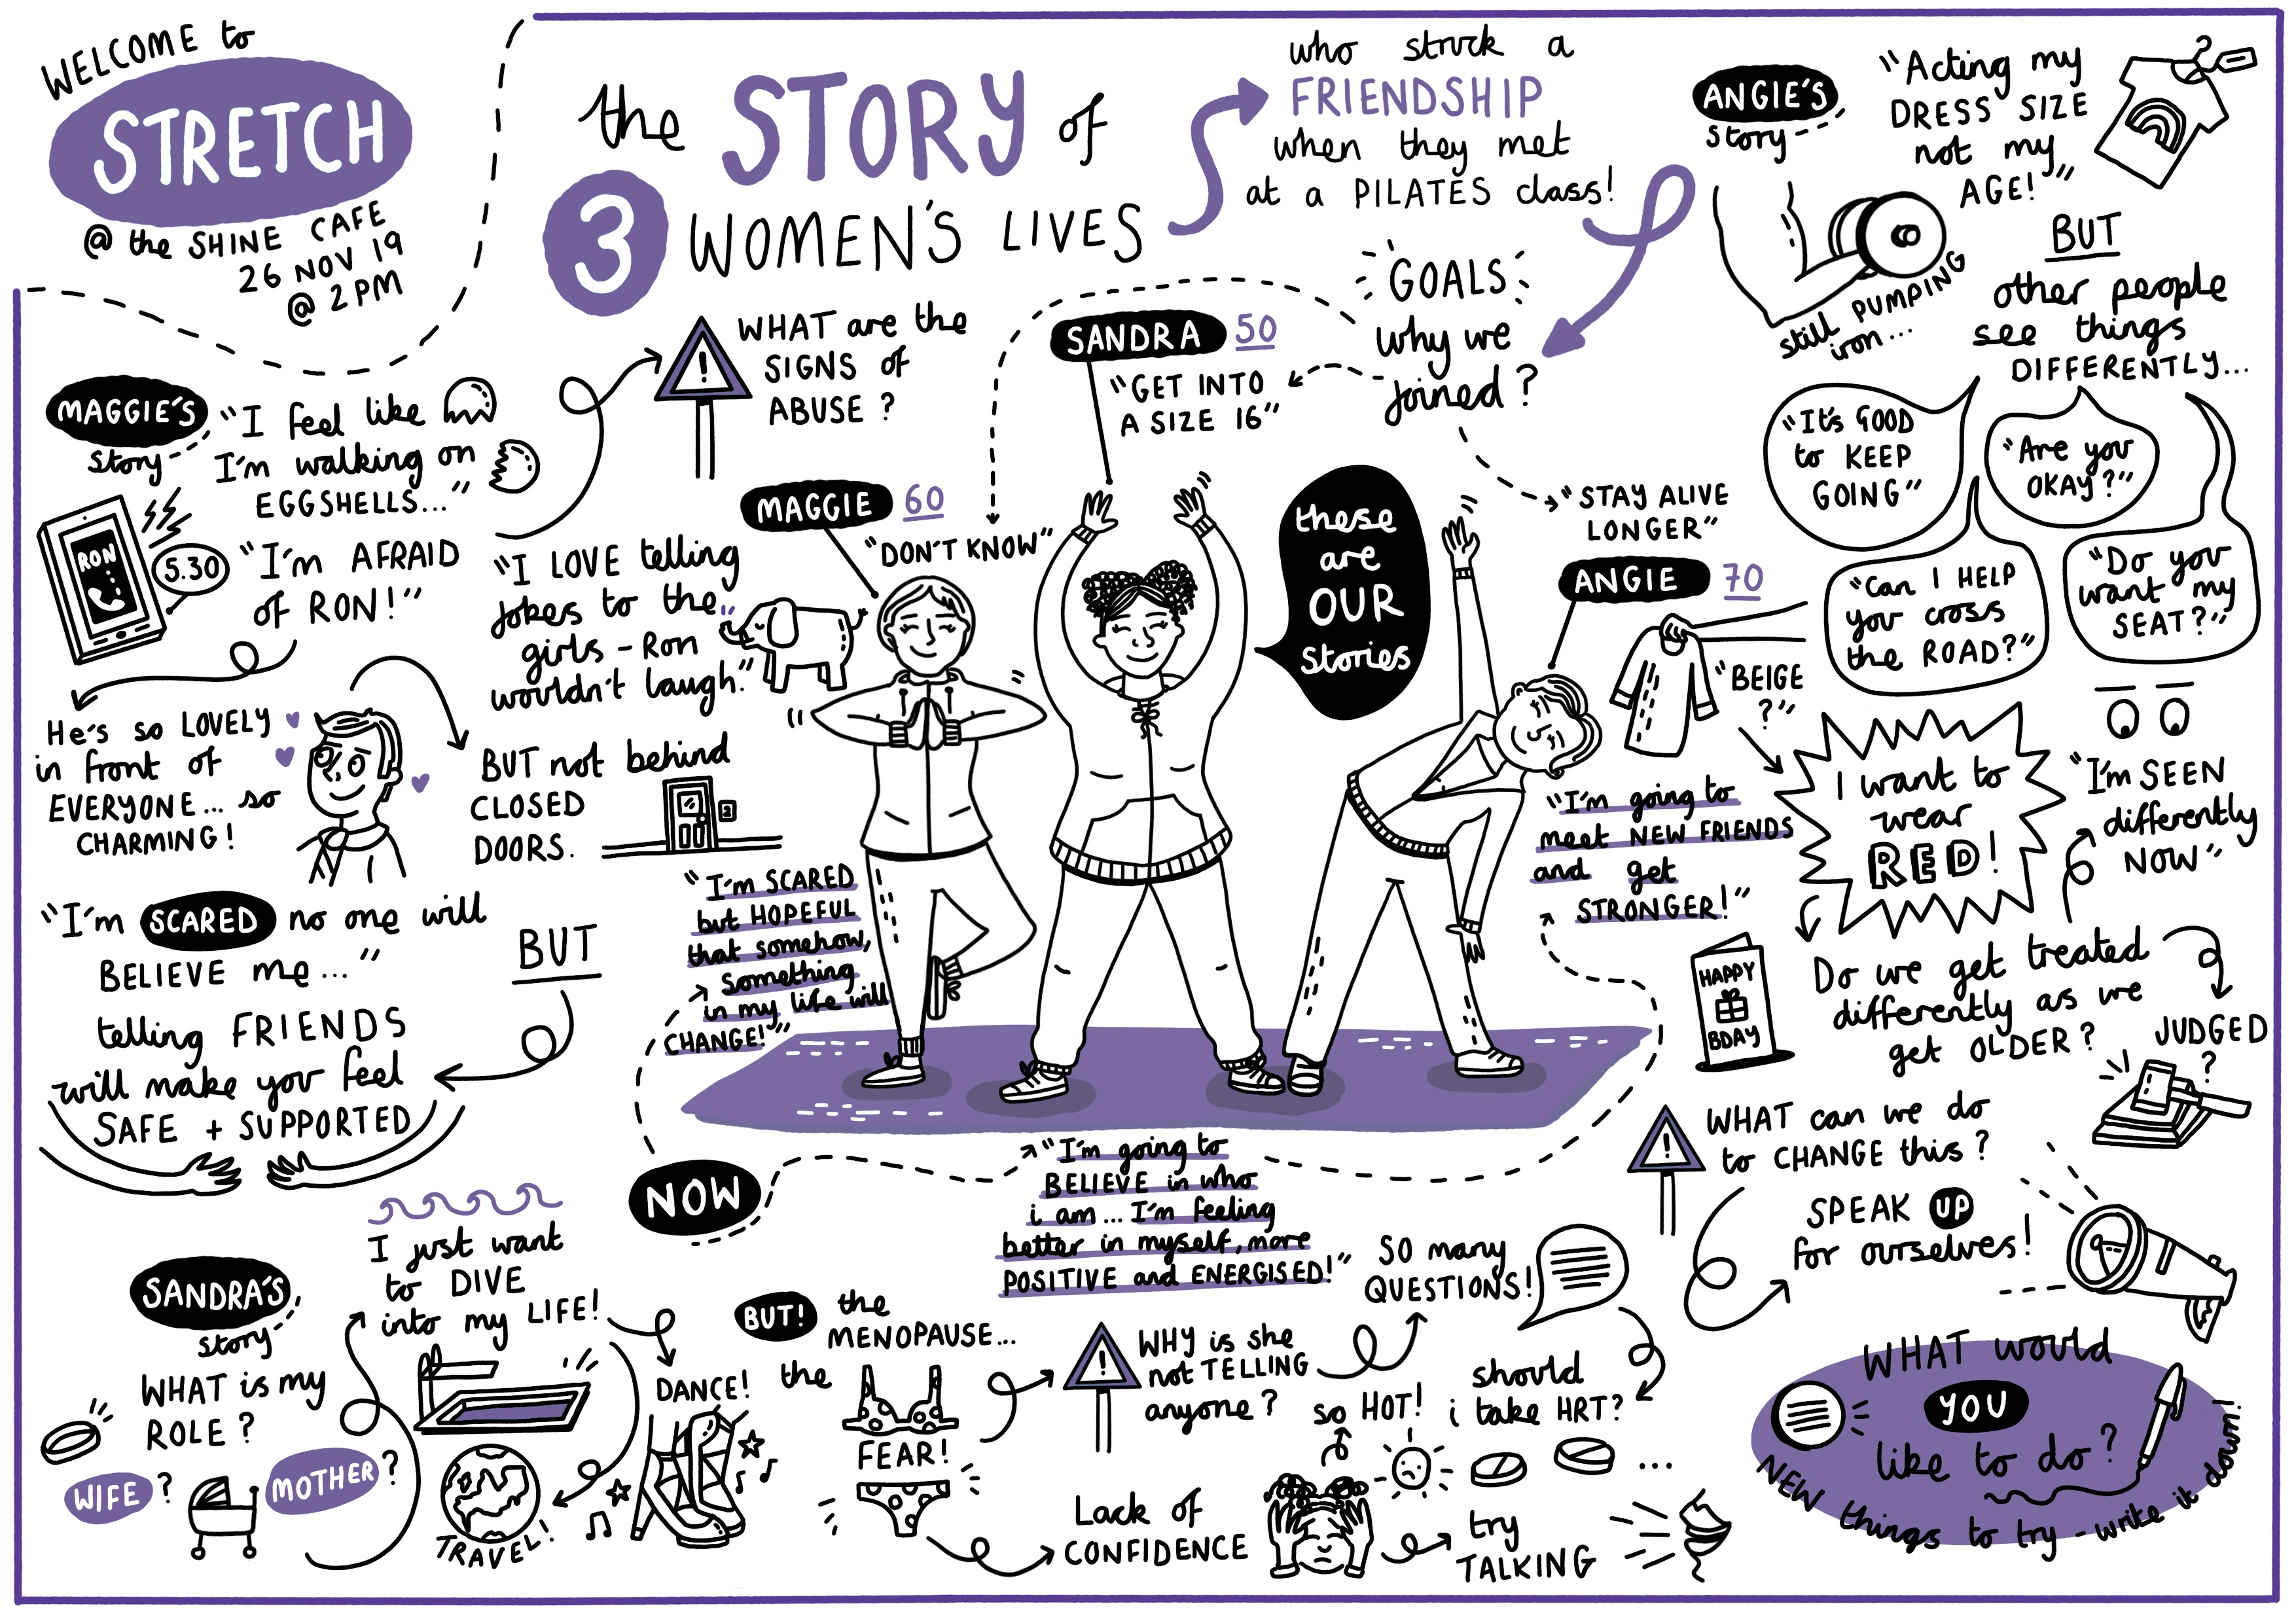 WELCOME to
STRETCH
@ the SHINE CAFE
26 NOV 19
@ 2PM
the STORY of
3 WOMEN'S LIVES
who struck a
FRIENDSHIP
when they met
at a PILATES class!
GOALS
why we
joined?
SANDRA 50
"GET INTO
A SIZE 16"
MAGGIE 60
"DON'T KNOW"
"STAY ALIVE
LONGER"
ANGIE 70
these
are
OUR
stories
MAGGIE'S
story
"I feel like
I'm walking on
EGGSHELLS..."
RON
5.30
"I'm AFRAID
of RON!"
WHAT are the
SIGNS of
ABUSE?
!
"I LOVE telling
jokes to the
girls - Ron
wouldn't laugh."
He's so LOVELY
in front of
EVERYONE... so
CHARMING!
BUT not behind
CLOSED
DOORS.
2
"I'm SCARED no one will
BELIEVE me..."
BUT
telling FRIENDS
will make you feel
SAFE + SUPPORTED
"I'm SCARED
but HOPEFUL
that somehow,
something
in my life will
CHANGE!"
NOW
"I'm going to
BELIEVE in who
i am... I'm feeling
better in myself, more
POSITIVE and ENERGISED!"
"I'm going to
meet NEW FRIENDS
and get
STRONGER!"
SANDRA'S
story
WHAT is my
ROLE?
WIFE?
MOTHER?
I just want
to DIVE
into my LIFE!
DANCE!
TRAVEL!
BUT! the
MENOPAUSE...
the
FEAR!
!
WHY is she
not TELLING
anyone?
SO many
QUESTIONS!
should
i take HRT?
...
Lack of
CONFIDENCE
so HOT!
try
TALKING
ANGIE'S
story
"Acting my
DRESS SIZE
not my
AGE!"
still PUMPING
iron...
BUT
other people
see things
DIFFERENTLY...
"It's GOOD
to KEEP
GOING"
"Are you
OKAY?"
"Can I HELP
you cross
the ROAD?"
"Do you
want my
SEAT?"
"BEIGE
?"
I want to
wear
RED!
"I'm SEEN
differently
NOW"
HAPPY
BDAY
Do we get treated
differently as we
get OLDER?
JUDGED
?
!
WHAT can we do
to CHANGE this?
SPEAK UP
for ourselves!
WHAT would
YOU
like to do?
NEW things to try - write it down!